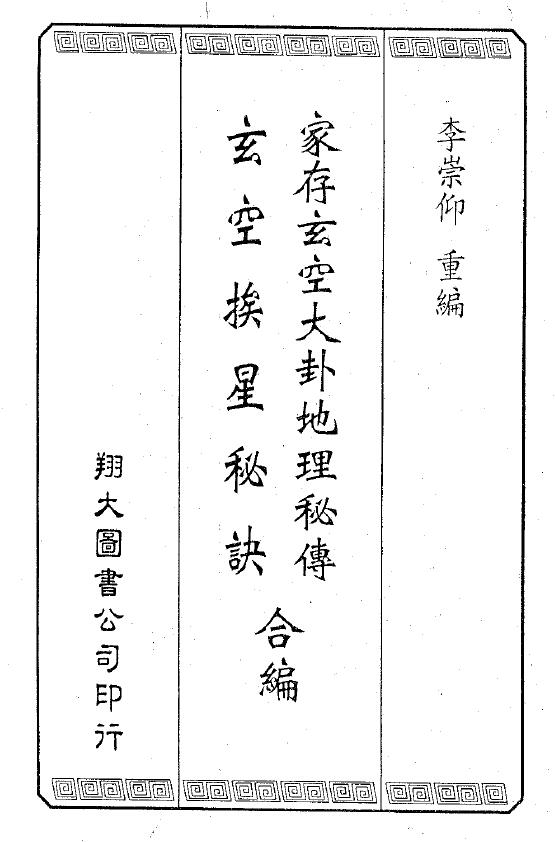 李崇仰 重編
家存玄空大卦地理秘傳
玄空挨星秘訣
合編
翔大圖書公司印行